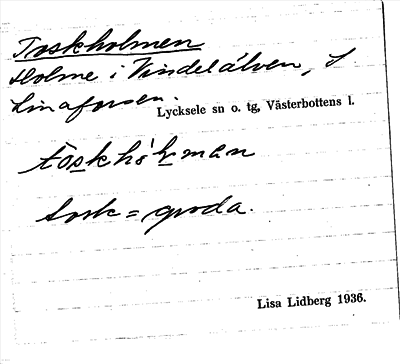 Toskholmen
Holme i Vindelälven, I
Linaforsen.
Lycksele sn o. tg, Västerbottens l.
tòskhòḷman
tosk = groda.
Lisa Lidberg 1936.